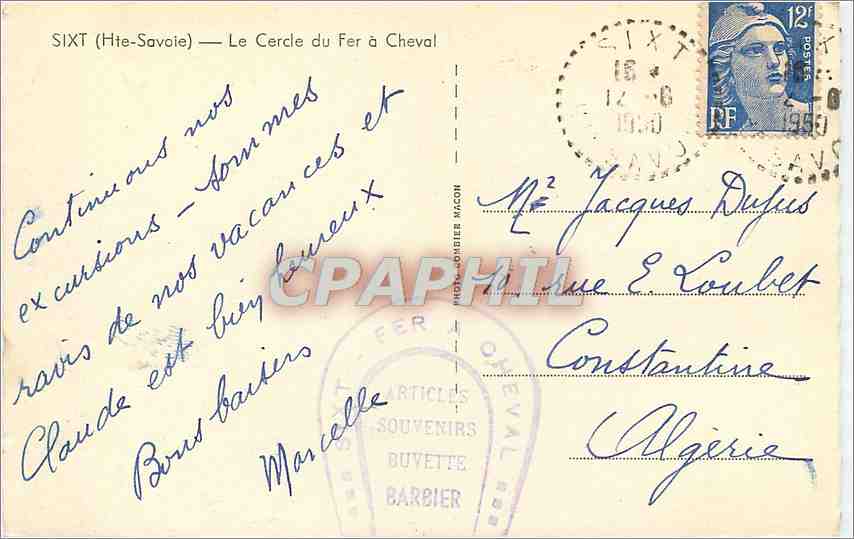 SIXT (Hte-Savoie) — Le Cercle du Fer à Cheval
Continuons nos
excursions - sommes
ravis de nos vacances et
Claude est bien heureux
Bons baisers
Marcelle
PHOTO COMBIER MACON
12F
POSTES
RF
SIXT
16
12 -6
1950
SAVO
1950
SAVO
Me Jacques Dufus
10, rue E. Loubet
Constantine
Algérie
CPAPHIL
SIXT - FER A CHEVAL
ARTICLES
SOUVENIRS
BUVETTE
BARBIER